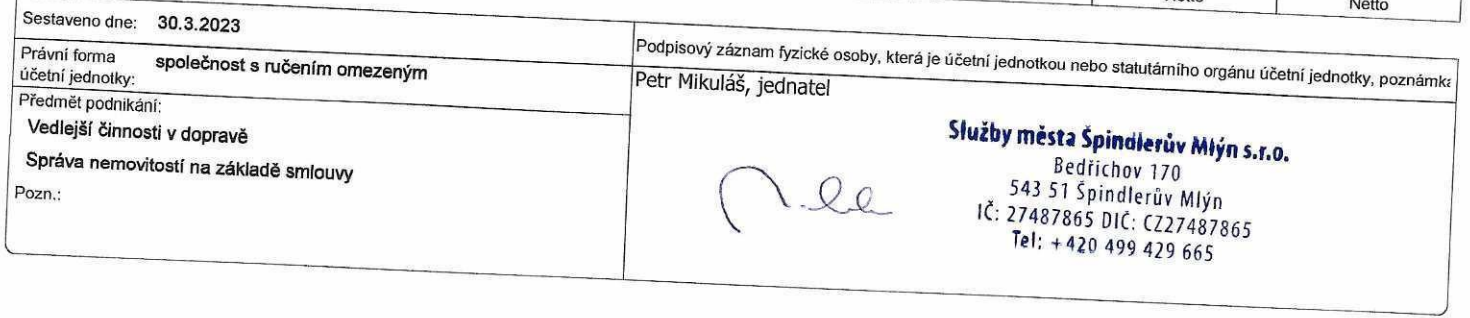 Netto
Sestaveno dne: 30.3.2023
Právní forma
účetní jednotky: společnost s ručením omezeným
Předmět podnikání:
Vedlejší činnosti v dopravě
Správa nemovitostí na základě smlouvy
Pozn.:
Podpisový záznam fyzické osoby, která je účetní jednotkou nebo statutárního orgánu účetní jednotky, poznámka
Petr Mikuláš, jednatel
Služby města Špindlerův Mlýn s.r.o.
Bedřichov 170
543 51 Špindlerův Mlýn
IČ: 27487865 DIČ: CZ27487865
Tel: +420 499 429 665